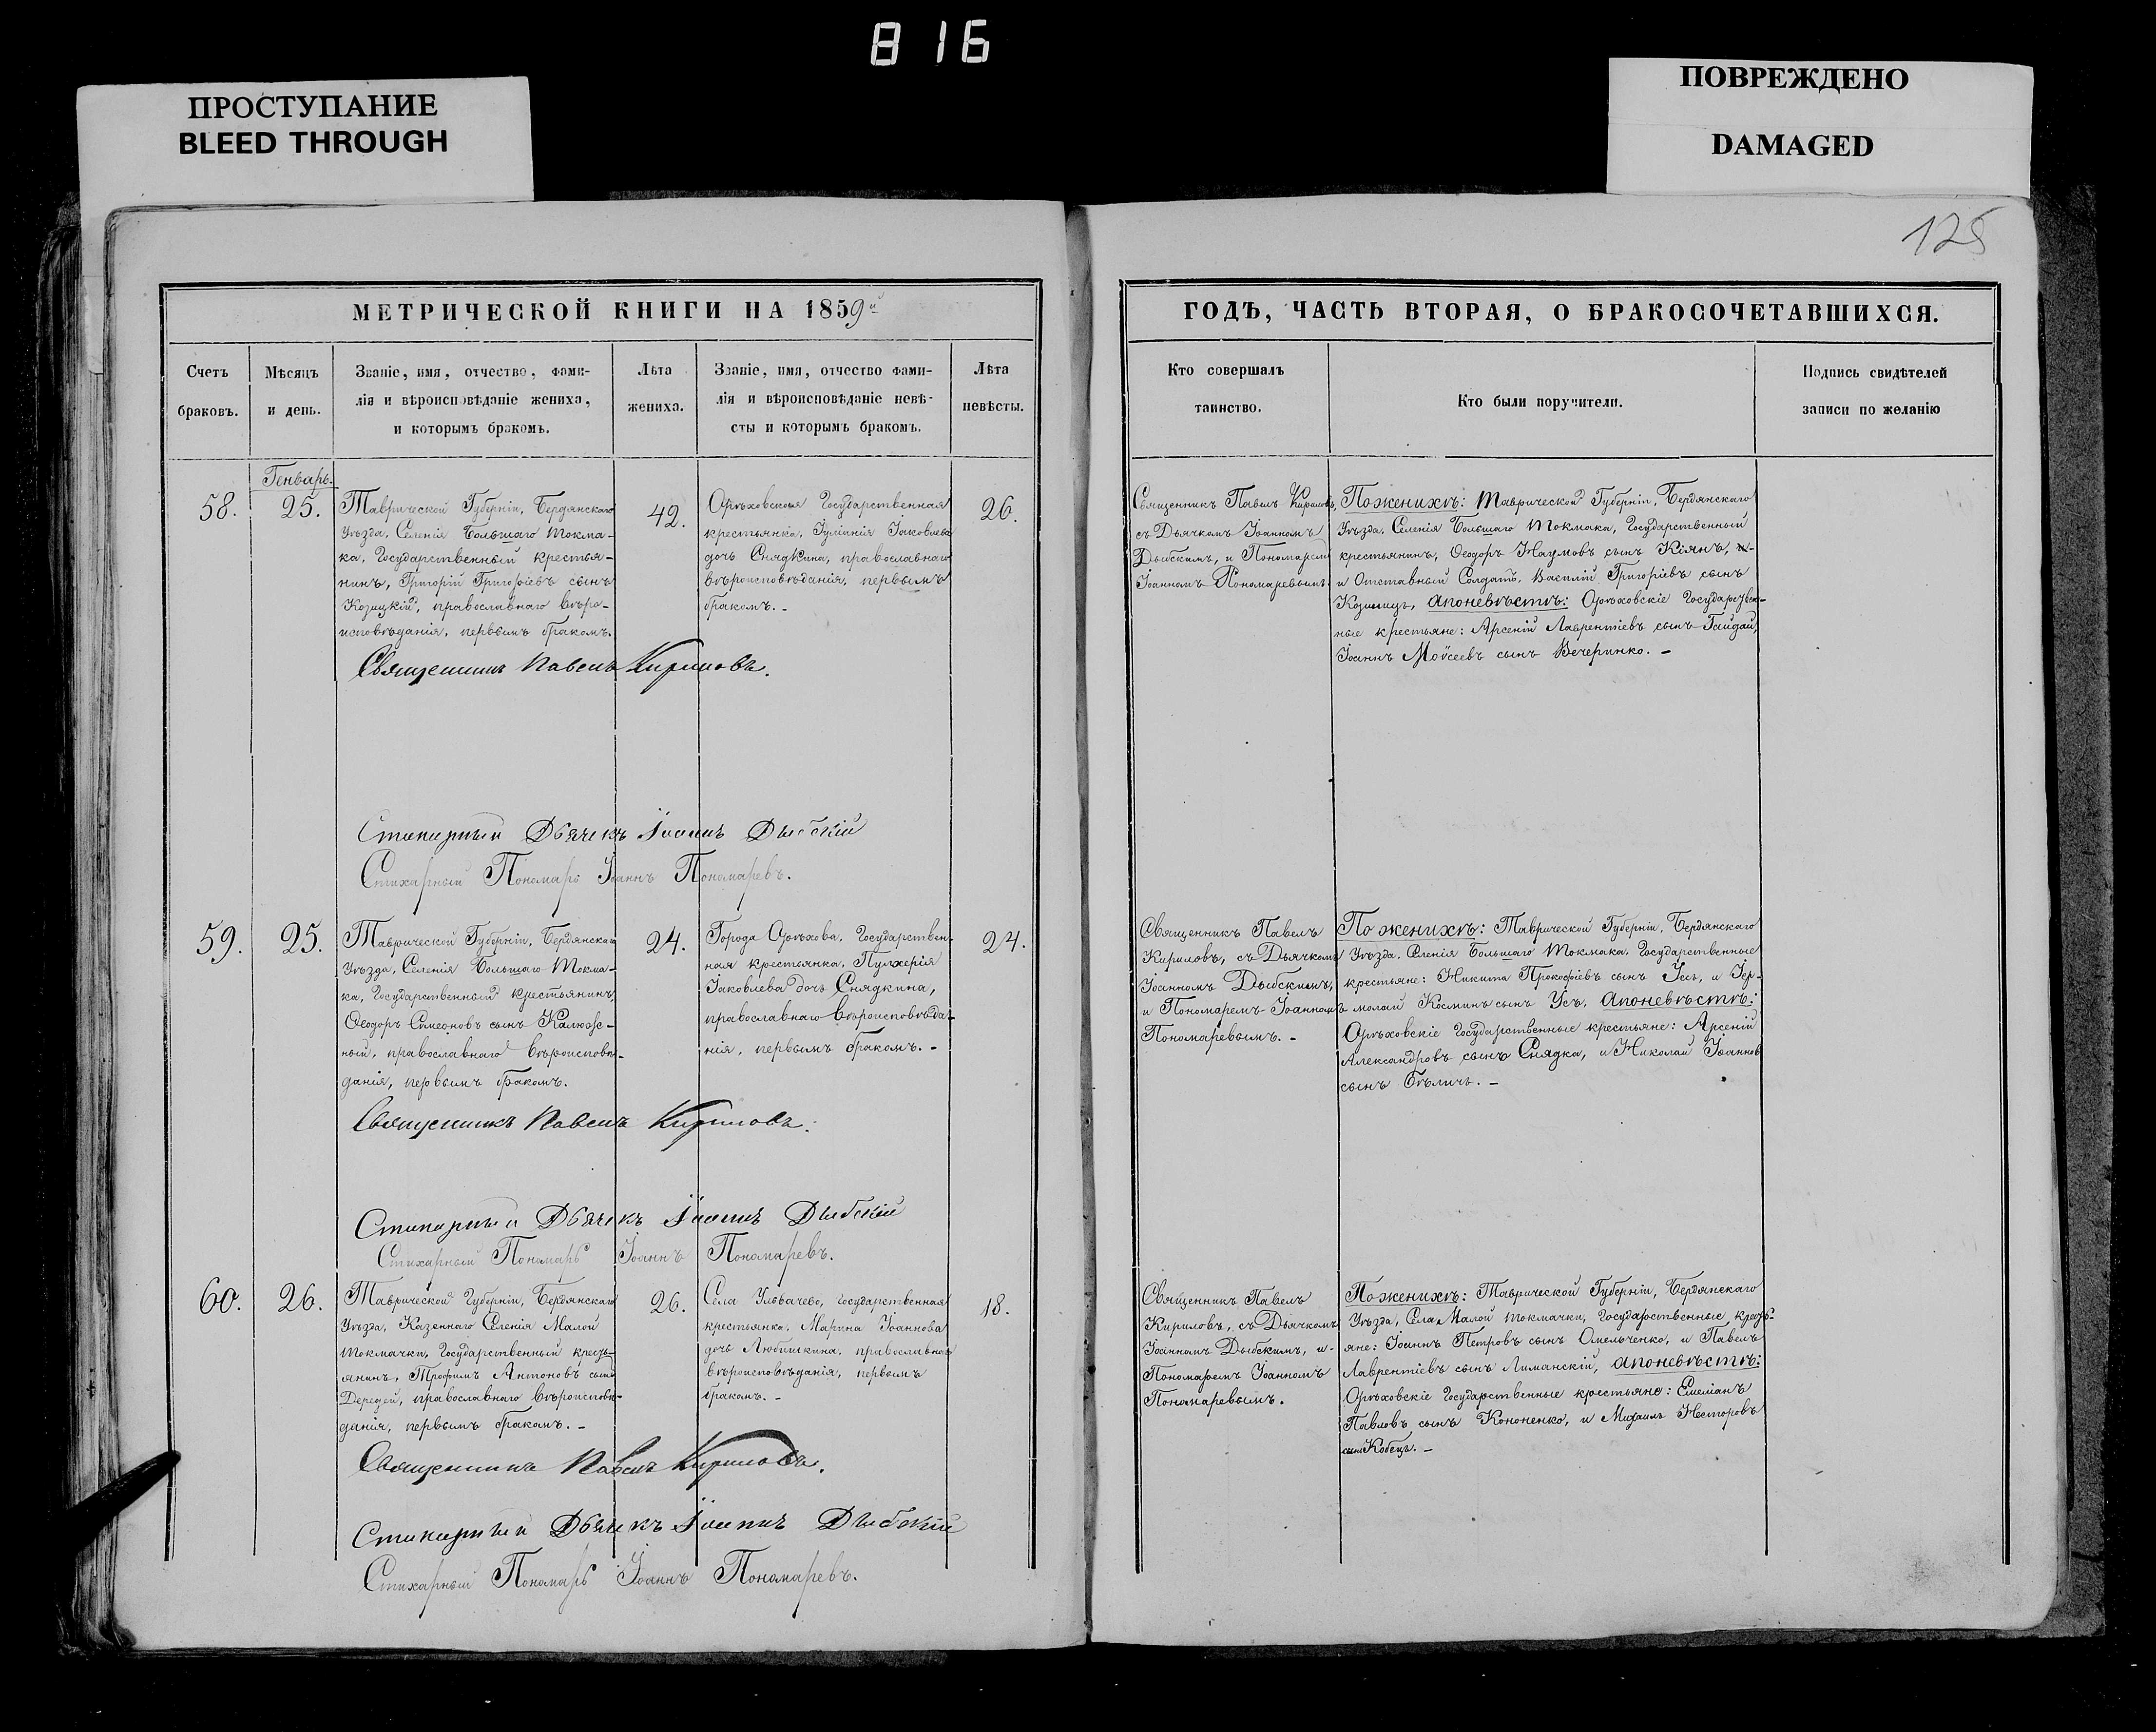 816
ПРОСТУПАНИЕ
BLEED THROUGH
ПОВРЕЖДЕНО
DAMAGED
125
МЕТРИЧЕСКОЙ КНИГИ НА 1859й
Счетъ
браковъ.
Мѣсяцъ
и день.
Званіе, имя, отчество, фами-
лія и вѣроисповѣданіе жениха,
и которымъ бракомъ.
Лѣта
жениха.
Званіе, имя, отчество фами-
лія и вѣроисповѣданіе невѣ-
сты и которымъ бракомъ.
Лѣта
невѣсты.
Генварь.
58.
25.
Таврической Губерніи, Бердянскаго
Уѣзда, Селенія Большаго Токма-
ка, Государственный крестья-
нинъ, Григорій Григоріевъ сынъ
Козицкій, православнаго вѣро-
исповѣданія, первымъ бракомъ.
42.
Орѣховская Государственная
крестьянка, Іуліанія Іаковлева
дочь Снядкина, православнаго
вѣроисповѣданія, первымъ
бракомъ. -
26.
Священникъ Павелъ Кириловъ.
Стихарный Дьячекъ Іоаннъ Дыбскій
Стихарный Пономарь Іоаннъ Пономаревъ.
59.
25.
Таврической Губерніи, Бердянскаго
Уѣзда, Селенія Большаго Токма-
ка, Государственный крестьянинъ,
Ѳеодоръ Симеоновъ сынъ Калюж-
ный, православнаго вѣроисповѣ-
данія, первымъ бракомъ.
24.
Города Орѣхова, Государствен-
ная крестьянка, Пулхерія
Іаковлева дочь Снядкина,
православнаго вѣроисповѣда-
нія, первымъ бракомъ. -
24.
Священникъ Павелъ Кириловъ.
Стихарный Дьячекъ Іоаннъ Дыбскій
Стихарный Пономарь Іоаннъ Пономаревъ.
60.
26.
Таврической Губерніи, Бердянскаго
Уѣзда, Казеннаго Селенія Малой
Токмачки, Государственный кресть-
янинъ, Трофимъ Антоновъ сынъ
православнаго вѣроисповѣ-
данія, первымъ бракомъ. -
26.
Села государственная
крестьянка, Марина Іоаннова
дочь Любишкина, православнаго
вѣроисповѣданія, первымъ
бракомъ. -
18.
Священникъ Павелъ Кириловъ.
Стихарный Дьячекъ Іоаннъ Дыбскій
Стихарный Пономарь Іоаннъ Пономаревъ.
ГОДЪ, ЧАСТЬ ВТОРАЯ, О БРАКОСОЧЕТАВШИХСЯ.
Кто совершалъ
таинство.
Кто были поручители.
Подпись свидѣтелей
записи по желанію
Священникъ Павелъ Кириловъ,
съ Дьячкомъ Іоанномъ
Дыбскимъ, и Пономаремъ
Іоанномъ Пономаревымъ.
По женихѣ: Таврической Губерніи, Бердянскаго
Уѣзда, Селенія Большаго Токмака, Государственный
крестьянинъ, Ѳеодоръ Наумовъ сынъ Кіянъ, и-
и Отставный Солдатъ, Василій Григоріевъ сынъ
а по невѣстѣ: Орѣховскіе Государствен-
ные крестьяне: Арсеній Лаврентіевъ сынъ Гайдай,
Іоаннъ Моѵсеевъ сынъ Вечеринко. -
Священникъ Павелъ
Кириловъ, съ Дьячкомъ
Іоанномъ Дыбскимъ,
и Пономаремъ Іоанномъ
Пономаревымъ. -
По женихѣ: Таврической Губерніи, Бердянскаго
Уѣзда, Селенія Большаго Токмака, Государственные
крестьяне: Никита Прокофіевъ сынъ Усъ, и Іер-
молай Косминъ сынъ Усъ, а по невѣстѣ:
Орѣховскіе Государственные крестьяне: Арсеній
Александровъ сынъ Снядка, и Николай Іоанновъ
сынъ Бѣличь. -
Священникъ Павелъ
Кириловъ, съ Дьячкомъ
Іоанномъ Дыбскимъ, и-
Пономаремъ Іоанномъ
Пономаревымъ.
По женихѣ: Таврической Губерніи, Бердянскаго
Уѣзда, Села Малой Токмачки, Государственные кресть-
яне: Іоаннъ Петровъ сынъ Омельченко, и Павелъ
Лаврентіевъ сынъ Лиманскій, а по невѣстѣ:
Орѣховскіе Государственные крестьяне: Емеліанъ
Павловъ сынъ Кононенко, и Михаилъ Несторовъ
сынъ Кобецъ. -